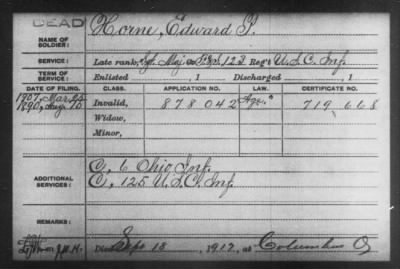 DEAD
NAME OF SOLDIER: Horne, Edward
SERVICE: Late rank, Sgt Maj 125 Reg't U.S.C. Inf.
TERM OF SERVICE: Enlisted , 1 Discharged , 1
DATE OF FILING. CLASS. APPLICATION NO. LAW. CERTIFICATE NO.
1907, Mar 25
1890, Aug 10 Invalid, 878042 719668
Widow,
Minor,
C, 6 Ohio Inf.
ADDITIONAL SERVICES: C, 125 U.S.C. Inf.
REMARKS:
Died Sep 18, 1912, at Columbus O,